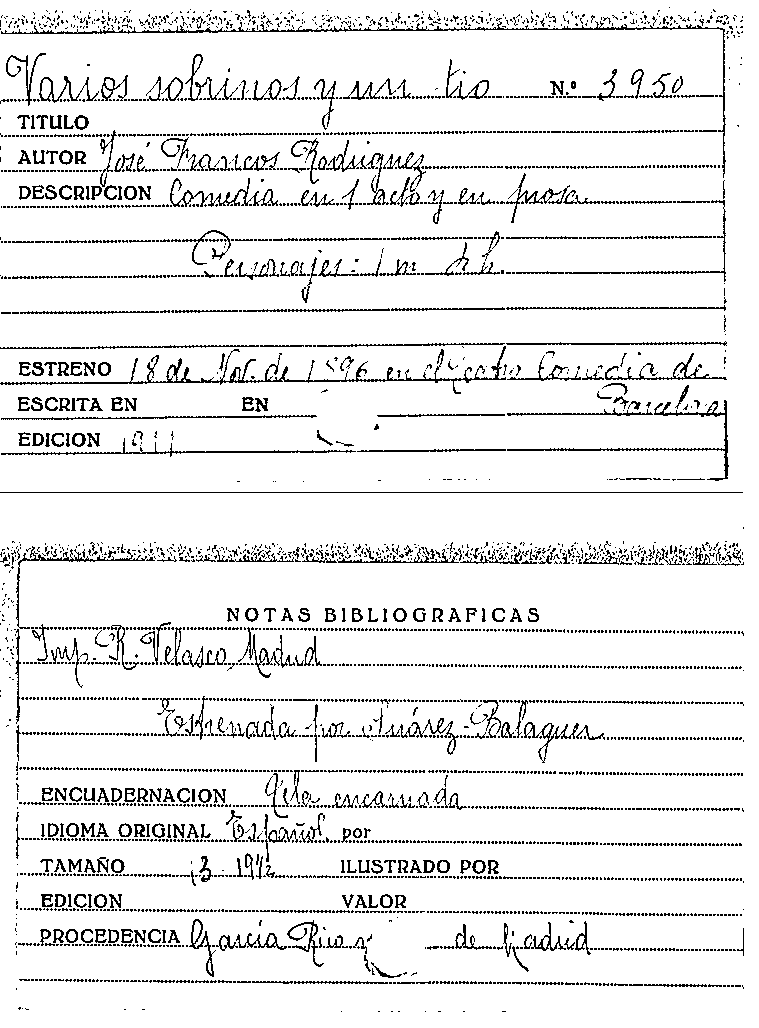 Varios sobrinos y un tio N.º 3950
TITULO
AUTOR José Francos Rodriguez
DESCRIPCION Comedia en 1 acto y en prosa.
Personajes: 1 m h.
ESTRENO 18 de Nov. de 1896 en el Teatro Comedia de
ESCRITA EN EN Barcelona
EDICION 1911
NOTAS BIBLIOGRAFICAS
Imp. R. Velasco, Madrid
Estrenada por Suárez-Balaguer.
ENCUADERNACION Tela encarnada
IDIOMA ORIGINAL Español. por
TAMAÑO 13 ILUSTRADO POR
EDICION VALOR
PROCEDENCIA García Rico y de Madrid